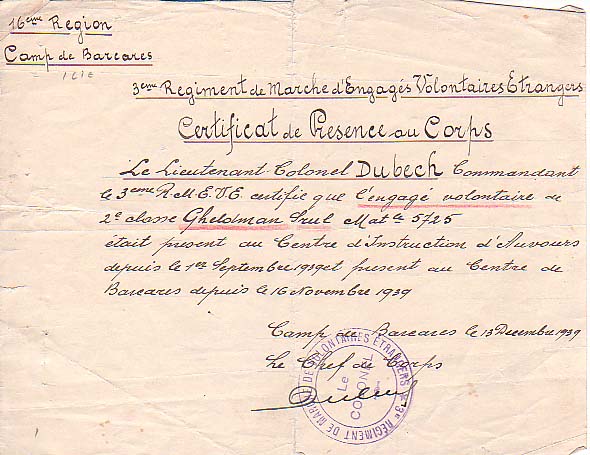 16eme Region
Camp de Barcares
3eme Regiment de Marche d'Engagés Volontaires Etrangers
Certificat de Presence au Corps
Le Lieutenant-Colonel Dubech Commandant
le 3eme R.M.E.V.E certifie que l'engagé volontaire de
2e classe Gheldman Srul Matle 5725
était present au Centre d'Instruction d'Auvours
depuis le 1er Septembre 1939 et present au Centre de
Barcares depuis le 16 Novembre 1939
Camp de Barcares le 13 Decembre 1939
Le Chef de Corps
3e RÉGIMENT DE MARCHE DE VOLONTAIRES ÉTRANGERS
Le
COLONEL